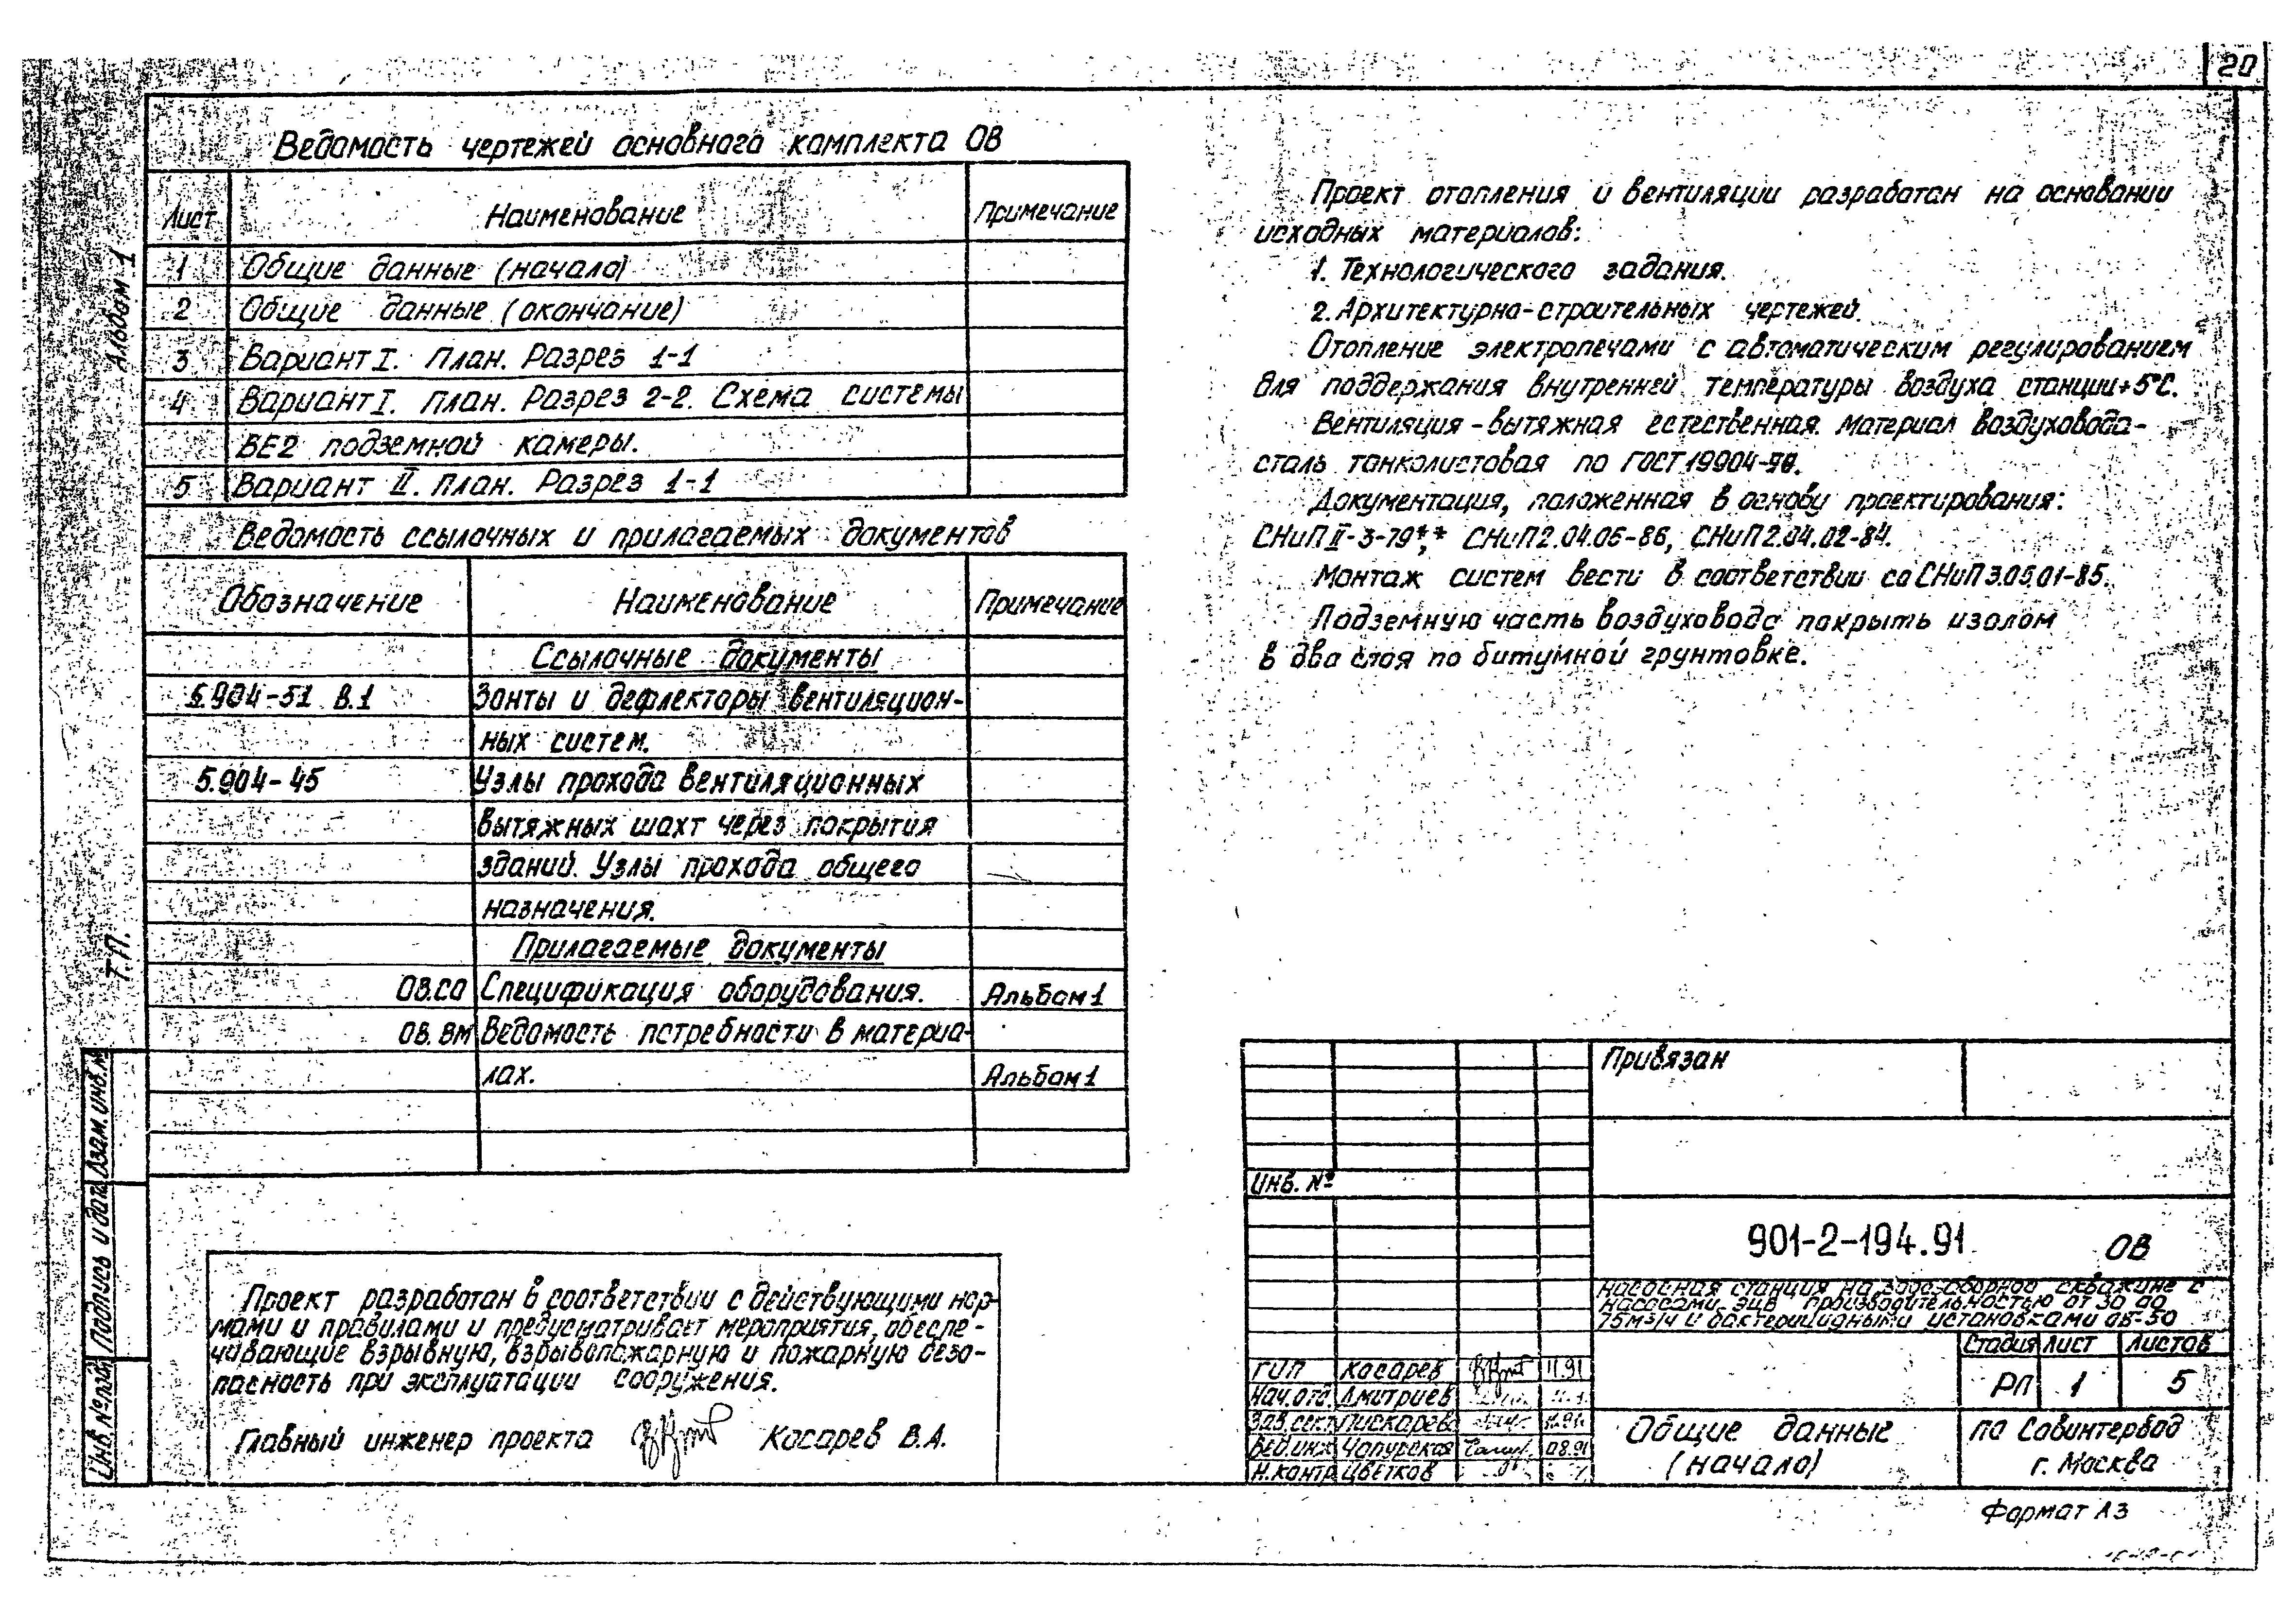 20
Ведомость чертежей основного комплекта ОВ
Лист Наименование Примечание
1 Общие данные (начало)
2 Общие данные (окончание)
3 Вариант I. План. Разрез 1-1
4 Вариант I. План. Разрез 2-2. Схема системы
ВЕ2 подземной камеры.
5 Вариант II. План. Разрез 1-1
Ведомость ссылочных и прилагаемых документов
Обозначение Наименование Примечание
Ссылочные документы
5.904-51 В.1 Зонты и дефлекторы вентиляцион-
ных систем.
5.904-45 Узлы прохода вентиляционных
вытяжных шахт через покрытия
зданий. Узлы прохода общего
назначения.
Прилагаемые документы
ОВ.СО Спецификация оборудования. Альбом 1
ОВ.ВМ Ведомость потребности в материа-
лах. Альбом 1
Проект разработан в соответствии с действующими нор-
мами и правилами и предусматривает мероприятия, обеспе-
чивающие взрывную, взрывопожарную и пожарную безо-
пасность при эксплуатации сооружения.
Главный инженер проекта Косарев В.А.
Проект отопления и вентиляции разработан на основании
исходных материалов:
1. Технологического задания.
2. Архитектурно-строительных чертежей.
Отопление электропечами с автоматическим регулированием
для поддержания внутренней температуры воздуха станции +5°С.
Вентиляция - вытяжная естественная. Материал воздуховода-
сталь тонколистовая по ГОСТ 19904-90.
Документация, положенная в основу проектирования:
СНиП II-3-79**, СНиП 2.04.05-86, СНиП 2.04.02-84.
Монтаж систем вести в соответствии со СНиП 3.05.01-85.
Подземную часть воздуховода покрыть изолом
в два слоя по битумной грунтовке.
Альбом 1
Т.П.
Взам. инв. №
Подпись и дата
Инв. № подл.
Привязан
Инв. №
901-2-194.91 ОВ
Насосная станция на водозаборной скважине с
насосами ЭЦВ производительностью от 30 до
75 м3/ч и бактерицидными установками ОВ-50
Стадия Лист Листов
РП 1 5
ГИП Косарев 11.91
Нач.отд. Дмитриев
Зав.сект. Пискарев 11.91
Вед.инж. Чопурская 08.91
Н.контр. Цветков
Общие данные
(начало)
ПО Совинтервод
г. Москва
Формат А3